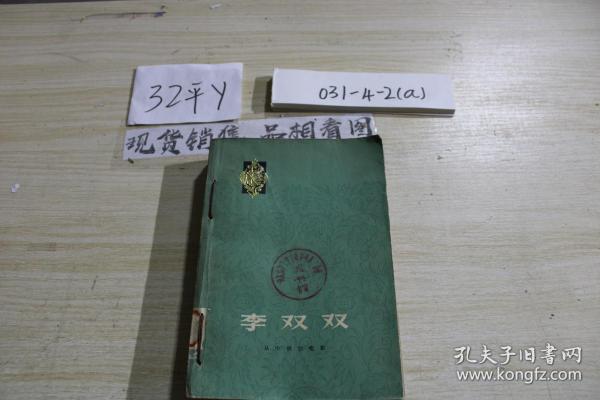 32平Y
031-4-2(a)
现货销售 品相看图
李双双
从小说到电影
孔夫子旧书网
www.kongfz.com